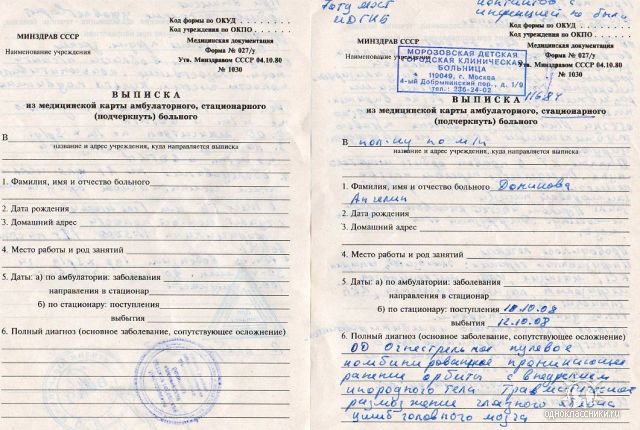 Код формы по ОКУД
Код учреждения по ОКПО
МИНЗДРАВ СССР
Медицинская документация
Наименование учреждения
Форма № 027/у
Утв. Минздравом СССР 04.10.80
№ 1030
ВЫПИСКА
из медицинской карты амбулаторного, стационарного
(подчеркнуть) больного
В
название и адрес учреждения, куда направляется выписка
1. Фамилия, имя и отчество больного
2. Дата рождения
3. Домашний адрес
4. Место работы и род занятий
5. Даты: а) по амбулатории: заболевания
направления в стационар
б) по стационару: поступления
выбытия
6. Полный диагноз (основное заболевание, сопутствующее осложнение)
контактов с
инфекцией не было
Код учреждения по ОКПО
МИНЗДРАВ СССР
Медицинская документация
Наименование учреждения
Форма № 027/у
Утв. Минздравом СССР 04.10.80
№ 1030
МОРОЗОВСКАЯ ДЕТСКАЯ
ГОРОДСКАЯ КЛИНИЧЕСКАЯ
БОЛЬНИЦА
119049, г. Москва
4-ый Добрынинский пер., д. 1/9
тел.: 236-24-02
ВЫПИСКА 11684
из медицинской карты амбулаторного, стационарного
(подчеркнуть) больного
В пол-ку по м/ж
название и адрес учреждения, куда направляется выписка
1. Фамилия, имя и отчество больного
2. Дата рождения
3. Домашний адрес
4. Место работы и род занятий
5. Даты: а) по амбулатории: заболевания
направления в стационар
б) по стационару: поступления 10.10.08
выбытия 12.10.08
6. Полный диагноз (основное заболевание, сопутствующее осложнение)
ОД Огнестрельное пулевое
комбинированное проникающее
ранение орбиты с внедрением
инородного тела травматическое
размозжение глазного яблока
ушиб головного мозга
одноклассники.ru